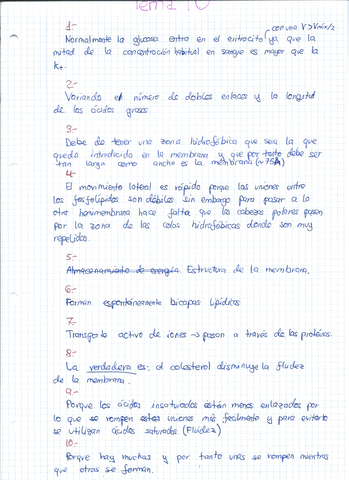 Tema 10
1-
con una V>Vmáx/2
Normalmente la glucosa entra en el eritrocito ya que la
mitad de la concentración habitual en sangre es mayor que la
Kt.
2-
Variando el número de dobles enlaces y la longitud
de los ácidos grasos
3-
Debe de tener una zona hidrofóbica que sea la que
quede introducida en la membrana y que por tanto debe ser
tan larga como ancho es la membrana
4-
El movimiento lateral es rápido porque las uniones entre
los fosfolípidos son débiles sin embargo para pasar a la
otra hemimembrana hace falta que las cabezas polares pasen
por la zona de las colas hidrofóbicas donde son muy
repelidas.
5-
Almacenamiento de energía. Estructura de la membrana.
6-
Forman espontáneamente bicapas lipídicas
7-
Transporte activo de iones → pasan a través de las proteínas.
8-
La verdadera es: el colesterol disminuye la fluidez
de la membrana.
9-
Porque los ácidos insaturados están menos enlazados por
lo que se rompen estas uniones más facilmente y para evitarlo
se utilizan ácidos saturados (Fluidez)
10-
Porque hay muchas y por tanto unas se rompen mientras
que otras se forman.